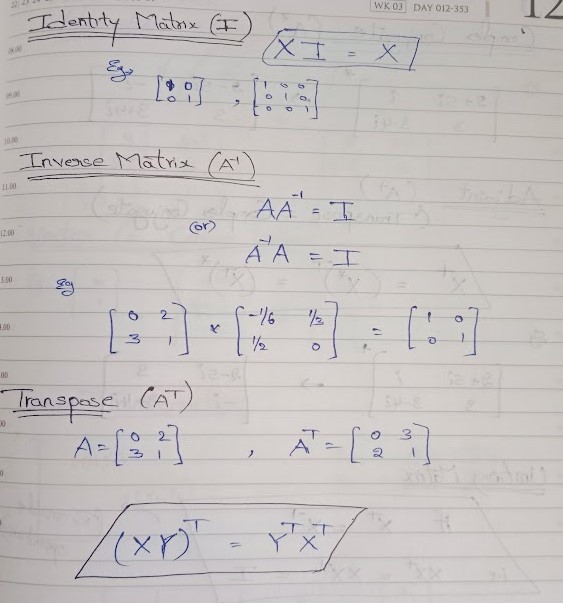 WK 03 DAY 012-353 12
Identity Matrix (I)
XI = X
Eg, [1 0
0 1] , [1 0 0
0 1 0
0 0 1]
Inverse Matrix (A⁻¹)
AA⁻¹ = I
(or)
A⁻¹A = I
Eg
[0 2
3 1] × [-1/6 1/3
1/2 0] = [1 0
0 1]
Transpose (Aᵀ)
A = [0 2
3 1] , Aᵀ = [0 3
2 1]
(XY)ᵀ = YᵀXᵀ